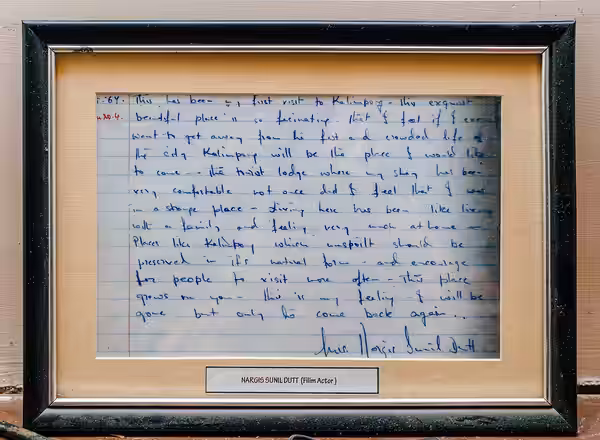 This has been my first visit to Kalimpong - this exquisit
beautiful place is so facinating. That I feel if I ever
want to get away from the fast and crowded life of
the city Kalimpong will be the place I would like
to come - the tourist lodge where my stay has been
very comfortable not once did I feel that I was
in a strange place - living here has been like living
with a family and feeling very much at home -
Places like Kalimpong which unspoilt should be
preserved in its natural form - and encourage
for people to visit more often - This place
grows on you - this is my feeling I will be
gone but only to come back again...
Mrs. Nargis Sunil Dutt
NARGIS SUNIL DUTT (Filim Actor)